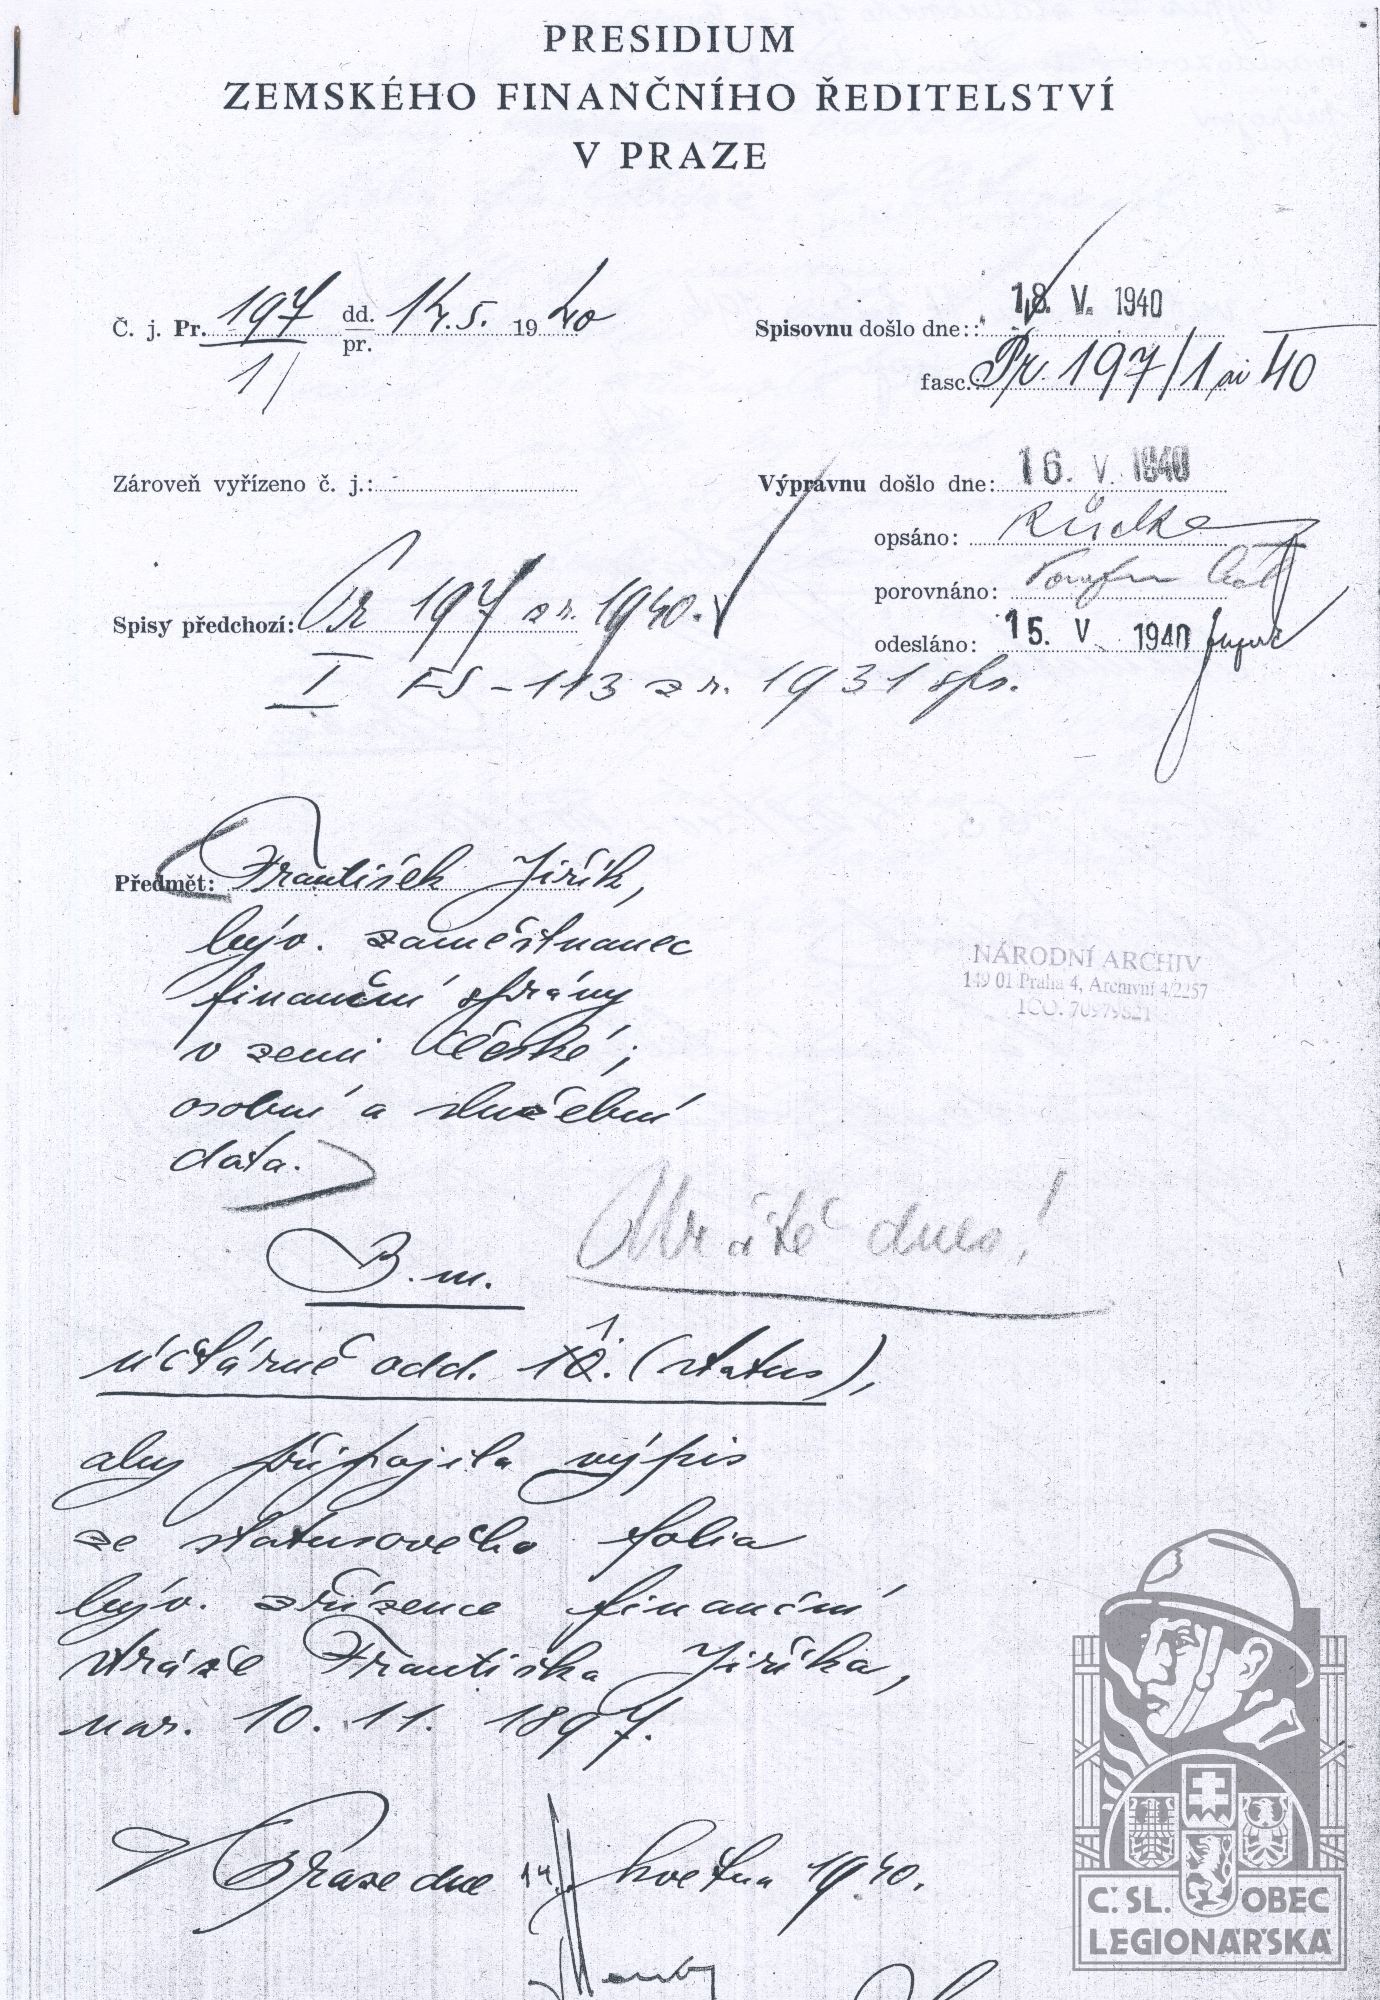 PRESIDIUM
ZEMSKÉHO FINANČNÍHO ŘEDITELSTVÍ
V PRAZE
Č. j. Pr. 197/1 dd./pr. 14.5. 1940
Spisovnu došlo dne: 18. V. 1940
fasc.: Pr. 197/1 ai 40
Zároveň vyřízeno č. j.:
Výpravnu došlo dne: 16. V. 1940
opsáno:
porovnáno:
odesláno: 15. V. 1940
Spisy předchozí: Pr 197 z r. 1940.
I FS-113 z r. 1931 sps.
Předmět: František Jiřík,
býv. zaměstnanec
finanční správy
v zemi České;
osobní a služební
data.
NÁRODNÍ ARCHIV
149 01 Praha 4, Archivní 4/2257
IČO: 70979821
Vraťte dnes!
B.m.
účtárně odd. 1. (status),
aby připojila výpis
ze statusového folia
býv. zřízence finanční
stráže Františka Jiříka,
nar. 10. 11. 1897.
V Praze dne 14. května 1940.
Č. SL. OBEC
LEGIONÁŘSKÁ